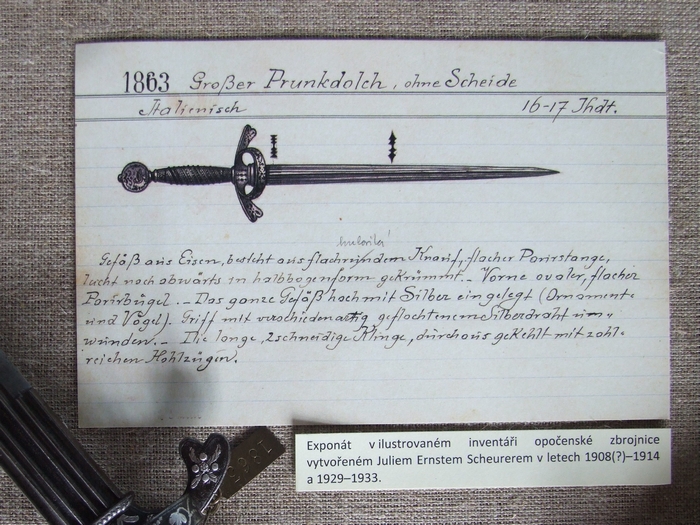 1863 Großer Prunkdolch, ohne Scheide
Italienisch 16-17 Jhdt.
Gefäß aus Eisen, besteht aus flachrundem Knauf, flacher Parirstange,
leicht nach abwärts in halbbogenform gekrümmt. - Vorne ovaler, flacher
Parirbügel. - Das ganze Gefäß hoch mit Silber eingelegt (Ornamente
und Vögel). Griff mit verschiedenartig geflochtenem Silberdraht um-
wunden. - Die lange, 2schneidige Klinge, durchaus gekehlt mit zahl-
reichen Hohlzügen.
1863
Exponát v ilustrovaném inventáři opočenské zbrojnice
vytvořeném Juliem Ernstem Scheurerem v letech 1908(?)–1914
a 1929–1933.